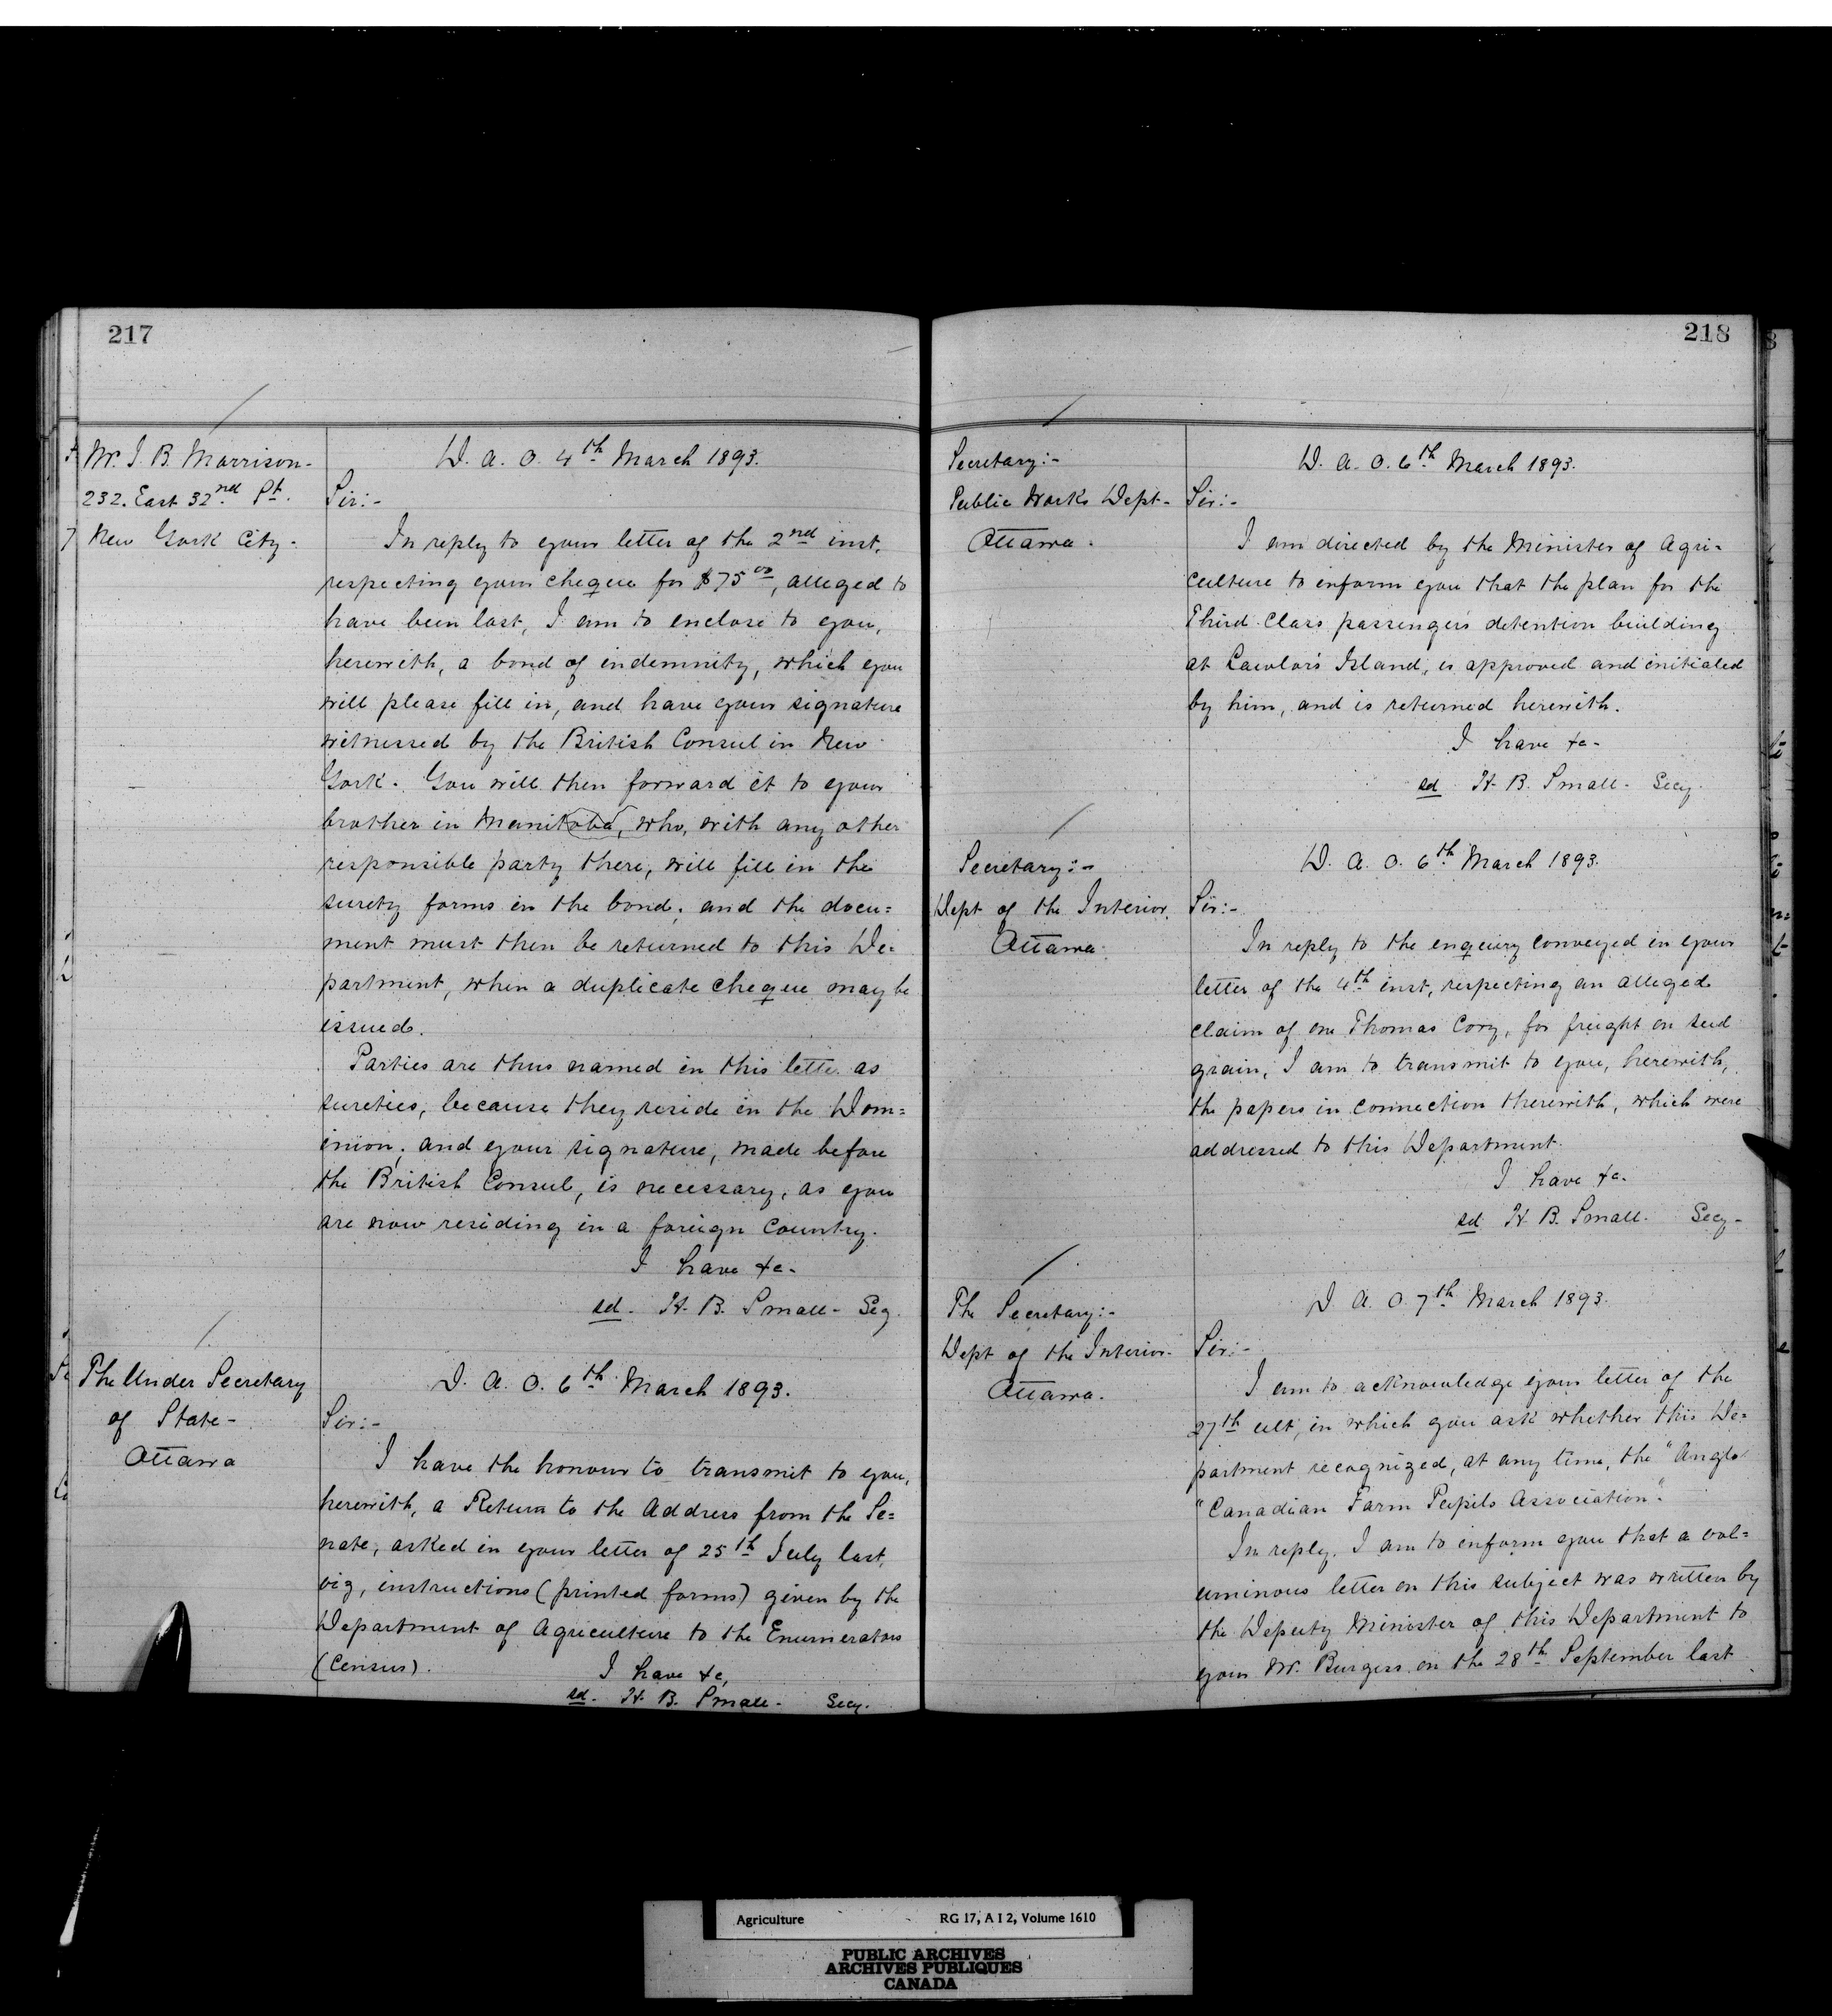 217
Mr. J. B. Morrison-
232. East 32nd St.
New York City-
D. A. O. 4th March 1893.
Sir:-
In reply to your letter of the 2nd inst.
respecting your cheque for $75 00, alleged to
have been lost, I am to enclose to you,
herewith, a bond of indemnity, which you
will please fill in, and have your signature
witnessed by the British Consul in New
York. You will then forward it to your
brother in Manitoba, who, with any other
responsible party there, will fill in the
surety forms in the bond; and the docu=
ment must then be returned to this De=
partment, when a duplicate cheque may be
issued.
Parties are thus named in this letter as
sureties, because they reside in the Dom=
inion; and your signature, made before
the British Consul, is necessary, as you
are now residing in a foreign country.
I have &c-
sd. H. B. Small- Secy.
The Under Secretary
of State-
Ottawa
D. A. O. 6th March 1893.
Sir:-
I have the honour to transmit to you,
herewith, a Return to the Address from the Se=
nate, asked in your letter of 25th July last,
viz, instructions (printed forms) given by the
Department of Agriculture to the Enumerators
(Census).
I have &c,
sd. H. B. Small- Secy.
218
Secretary:-
Public Works Dept-
Ottawa.
D. A. O. 6th March 1893.
Sir:-
I am directed by the Minister of Agri-
culture to inform you that the plan for the
Third Class passengers detention building
at Lawlor's Island, is approved and initialed
by him, and is returned herewith.
I have &c-
sd H. B. Small- Secy.
Secretary:-
Dept of the Interior.
Ottawa.
D. A. O. 6th March 1893.
Sir:-
In reply to the enquiry conveyed in your
letter of the 4th inst, respecting an alleged
claim of one Thomas Cory, for freight on seed
grain, I am to transmit to you, herewith,
the papers in connection therewith, which were
addressed to this Department.
I have &c.
sd H. B. Small- Secy-
The Secretary:-
Dept of the Interior-
Ottawa.
D. A. O. 7th March 1893.
Sir:-
I am to acknowledge your letter of the
27th ult, in which you ask whether this De=
partment recognized, at any time, the "Anglo
"Canadian Farm Pupils Association".
In reply, I am to inform you that a vol=
uminous letter on this subject was written by
the Deputy Minister of this Department to
your Mr. Burgess on the 28th September last
Agriculture RG 17, A I 2, Volume 1610
PUBLIC ARCHIVES
ARCHIVES PUBLIQUES
CANADA